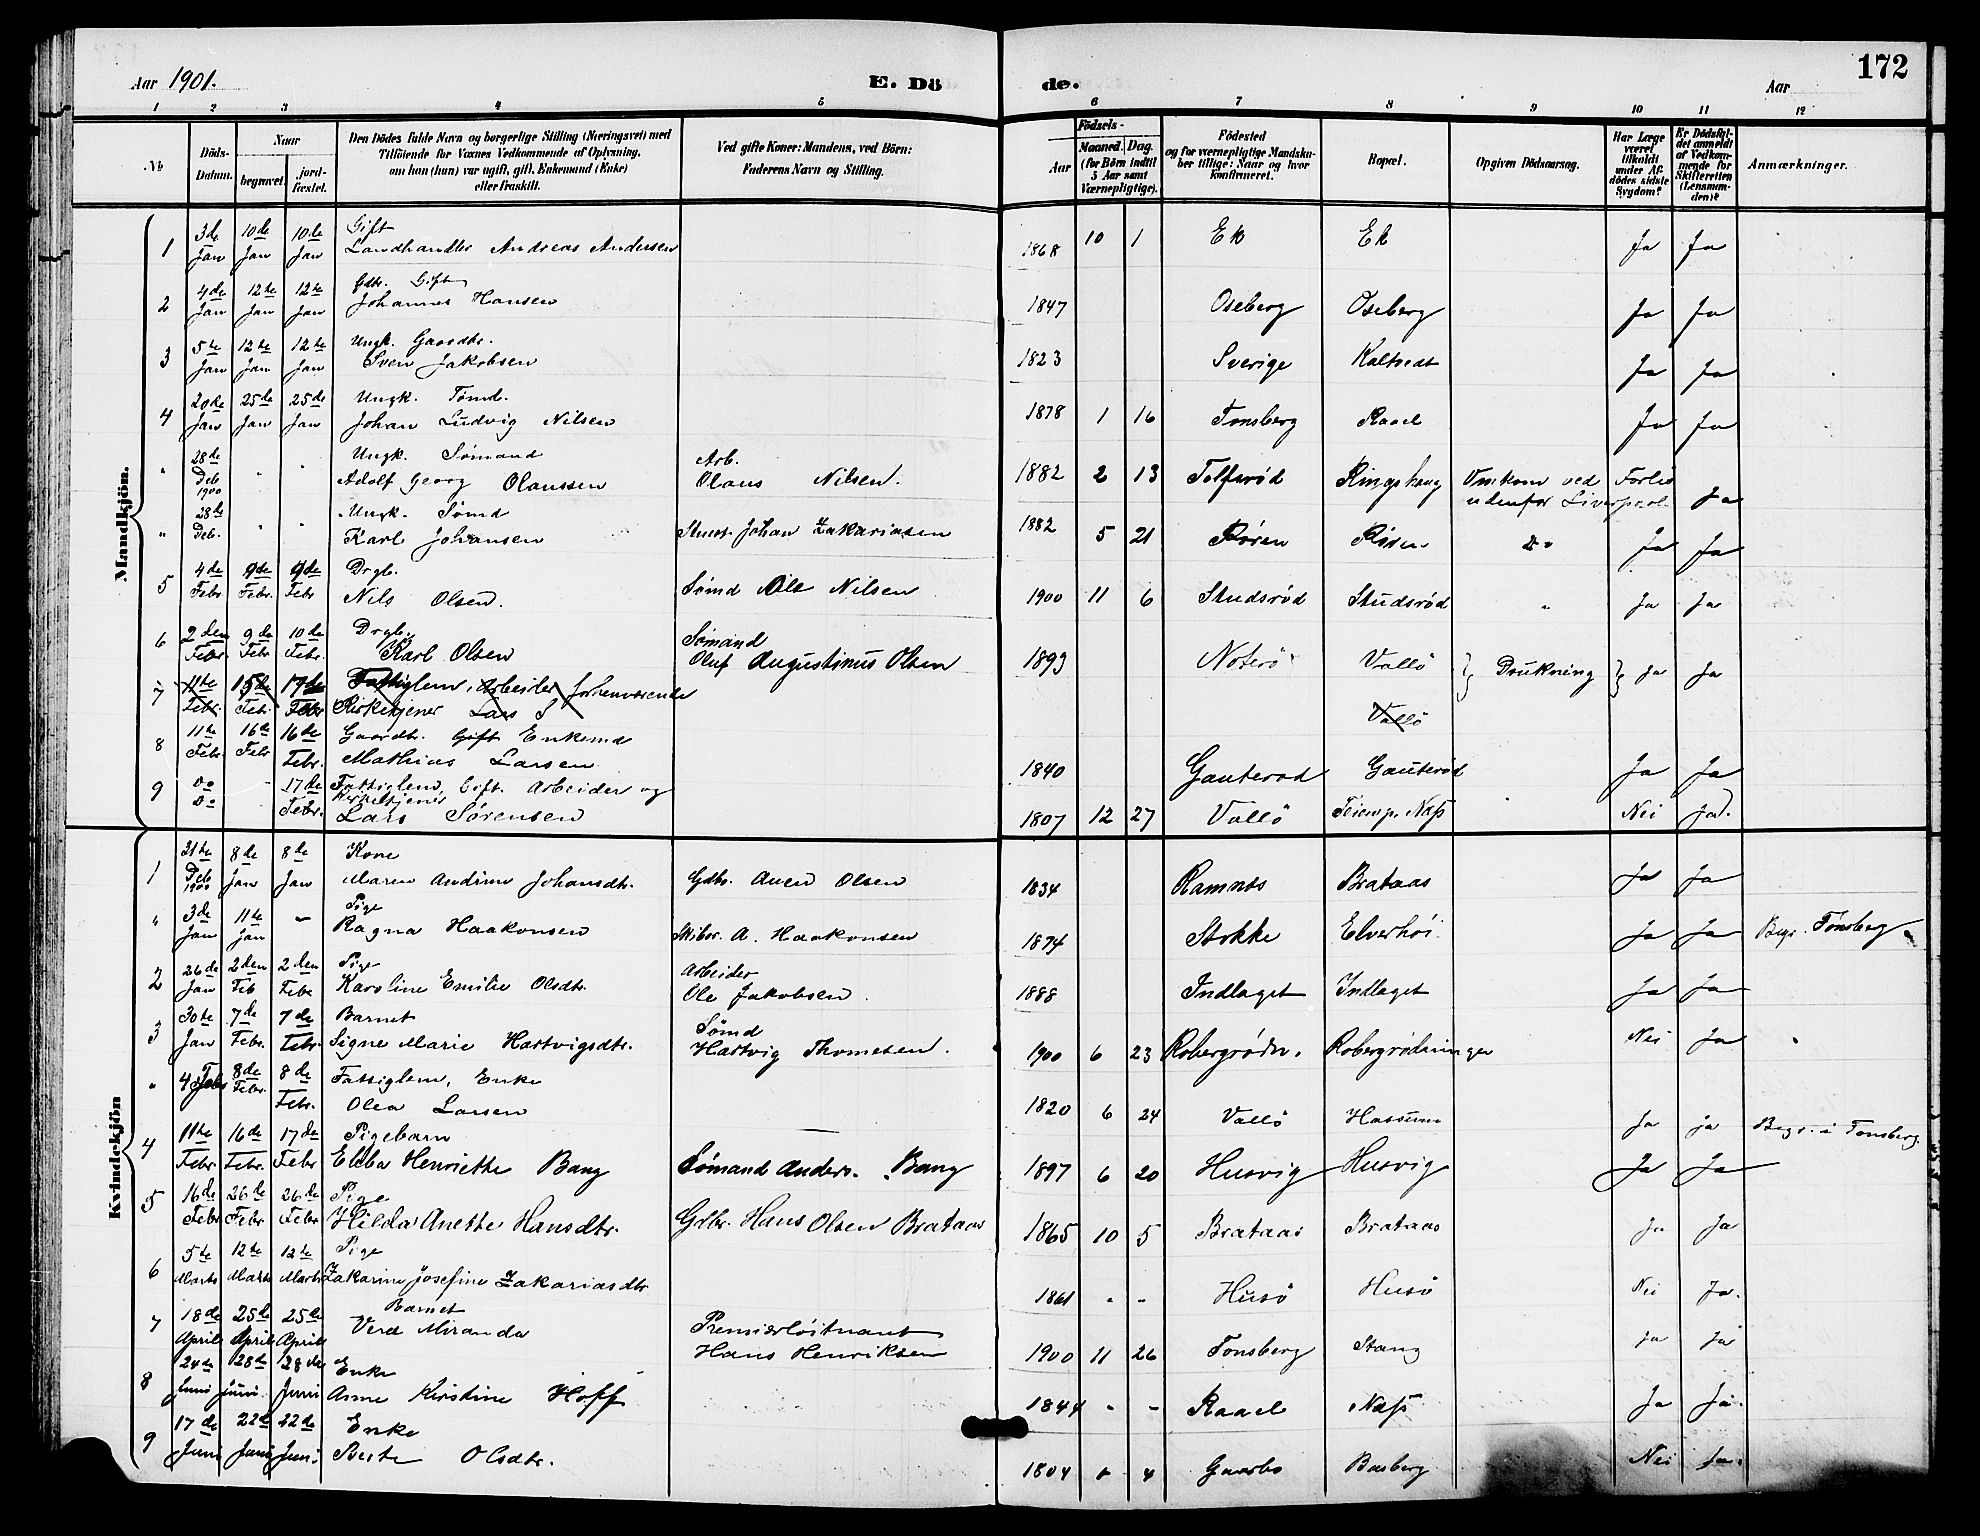 Aar 1901. E. Dö de. Aar 172
1 2 3 4 5 6 7 8 9 10 11 12
No Döds-Datum. Naar begravet. jord-fæstet. Den Dödes fulde Navn og borgerlige Stilling (Næringsvei) med Tilföiende for Voxnes Vedkommende af Oplysning, om han (hun) var ugift, gift, Enkemand (Enke) eller fraskilt. Ved gifte Koner: Mandens, ved Börn: Faderens Navn og Stilling. Födsels- Aar Maaned. Dag. (for Börn indtil 5 Aar samt Værnepligtige). Födested og for værnepligtige Mandskaber tillige: Naar og hvor konfirmeret. Bopæl. Opgiven Dödsaarsag. Har Læge været tilkaldt under Afdödes sidste Sygdom? Er Dödsfaldet anmeldt af Vedkommende for Skifteretten (Lensmanden)? Anmærkninger.
Mandkjön.
1 3de Jan 10de Jan 10de Jan Gift Landhandler Andreas Andersen 1868 10 1 Ek Ek Ja Ja
2 4de Jan 12te Jan 12te Jan Gdbr. Gift Johannes Hansen 1847 Oseberg Oseberg Ja Ja
3 5te Jan 12te Jan 12te Jan Ungk. Gaardbr. Sven Jakobsen 1823 Sverige Kaltvedt Ja Ja
4 20de Jan 25de Jan 25de Jan Ungk. Tømd. Johan Ludvig Nilsen 1878 1 16 Tønsberg Raael Ja Ja
" 28de Deb 1900 " " Ungk. Sømand Adolf Georg Olaussen Arb. Olaus Nilsen. 1882 2 13 Tolfsrød Ringshaug Omkom ved Forlis udenfor Liverpool. Ja
" 28de Deb. " " Ungk. Sømd Karl Johansen Johan Zakariasen 1882 5 21 Røren Røren Do Ja Ja
5 4de Febr 9de Febr. 9de Febr Drgb. Nils Olsen. Sømd Ole Nilsen 1900 11 6 Studsrød Studsrød " Ja Ja
6 2den Febr. 9de Febr 10de Febr. Drgb. Karl Olsen Sømand Oluf Augustinus Olsen 1893 Noterø Vallö Drukning Ja Ja
7 11te Febr. 15de Febr. 17de Febr Fattiglem, Arbeider forhenværende Kirketjener Lars S Vallö
8 11te Febr. 16de Febr 16de Febr. Gaardbr. Gift Enkemd Mathias Larsen 1840 Gauterød Gauterød Ja Ja
9 Do Do - 17de Febr. Fattiglem, Gift. Arbeider og Kirketjener Lars Sørensen 1807 12 27 Vallö Næss Nei Ja.
Kvindekjön
1 31te Deb 1900 8de Jan 8de Jan Kone Maren Andrine Johansdtr. Gdbr. Auen Olsen 1834 Ramnes Brataas Ja Ja
" 3de Jan 11te Jan - Pige Ragna Haakonsen Skibsr. A. Haakonsen 1874 Stokke Elverhöi Ja Ja Begr. Tønsberg
2 26de Jan 2den Feb 2den Febr Pige Karoline Emilie Olsdtr. Arbeider Ole Jakobsen. 1888 Indlaget Indlaget Ja Ja
3 30te Jan 7de Febr. 7de Febr. Barnet Signe Marie Hartvigsdtr. Sømd Hartvig Thomesen. 1900 6 23 Robergrødn. Robergrødningen Nei Ja
" 4 Febr 8de Febr. 8de Febr. Fattiglem, Enke Olea Larsen 1820 6 24 Vallö Hassum Ja ja Begr. i Tønsberg
4 11te Febr 16de Febr. 17de Febr Pigebarn Ebba Henriette Bang Sømand Anders. Bang 1897 6 20 Husvig Husvig Ja Ja
5 16de Febr 26de Febr 26de Febr Pige Hilda Anette Hansdtr. Gdbr. Hans Olsen Brataas 1865 10 5 Brataas Brataas Ja Ja
6 5te Marts 12te Marts 12te Marts Pige Zakarine Josefine Zakariasdtr 1861 - - Husö Husö Nei Ja.
7 18de April 25de April 25de April Barnet Vera Miranda Premierløitnant Hans Henriksen 1900 11 26 Tønsberg Stang Ja Ja
8 24de Juni 28de Juni. 28de Juni Enke Anne Kirstine Hoff 1844 - - Raael Næss Ja Ja.
9 17de Juni 22de Juni 22de Juni. Enke Berte Olsdtr. 1804 4 Gaarbo Basberg Nei Ja.